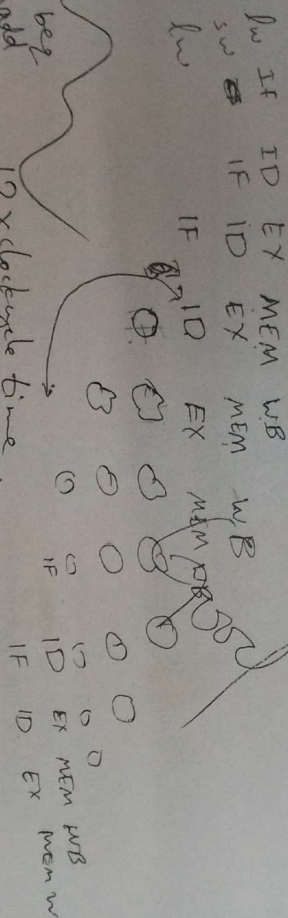 lw IF ID EX MEM WB
sw IF ID EX MEM WB
lw IF ID EX MEM WB
beq IF ID EX MEM WB
add IF ID EX MEM W
12 x clockcycle time.